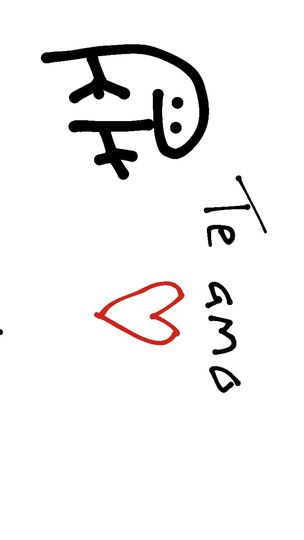 Te amo